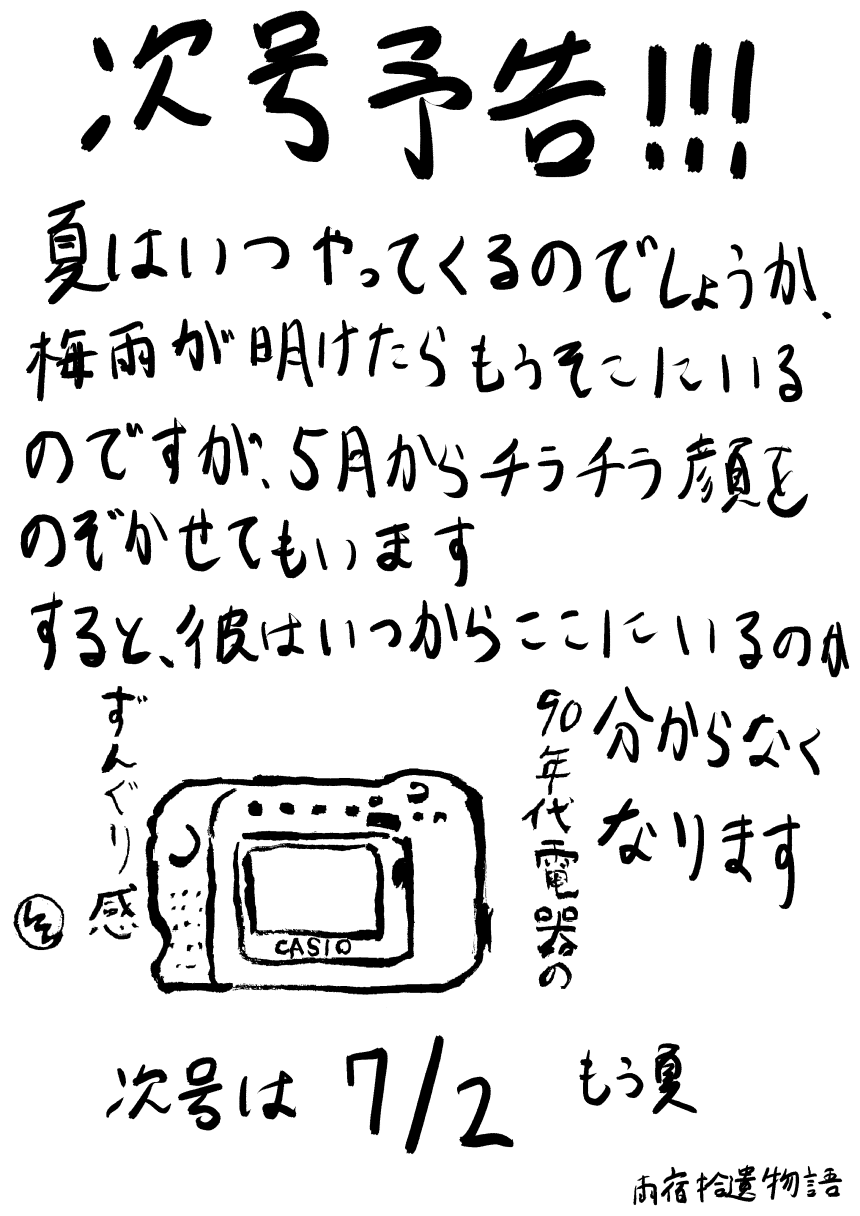 次号予告!!!
夏はいつやってくるのでしょうか、
梅雨が明けたらもうそこにいる
のですが、5月からチラチラ顔を
のぞかせてもいます
すると、彼はいつからここにいるのか
分からなく
なります
90年代電器の
ずんぐり感
CASIO
次号は 7/2 もう夏
雨宿拾遺物語